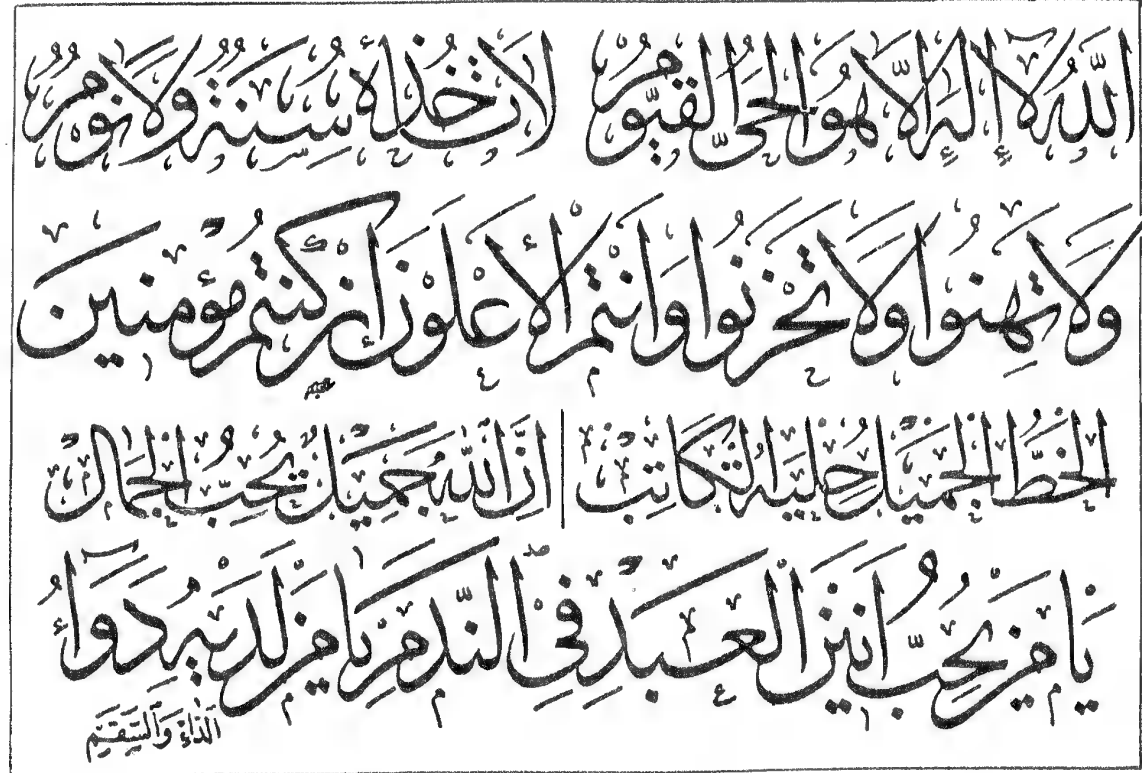 اَللّٰهُ لَآ إِلٰهَ إِلَّا هُوَ الْحَىُّ الْقَيُّومُ لَا تَأْخُذُهُ سِنَةٌ وَلَا نَوْمٌ
وَلَا تَهِنُوا وَلَا تَحْزَنُوا وَانْتُمُ الْأَعْلَوْنَ اِنْ كُنْتُمْ مُؤْمِنِينَ
الْخَطُّ الْجَمِيلُ حِلْيَةُ الْكَاتِبِ اِنَّ اللّٰهَ جَمِيلٌ يُحِبُّ الْجَمَالَ
يَا مَنْ يُحِبُّ اَنِينَ الْعَبْدِ فِى النَّدَمِ يَا مَنْ لَدَيْهِ دَوَآءُ
الدَّاءِ وَالسَّقَمِ